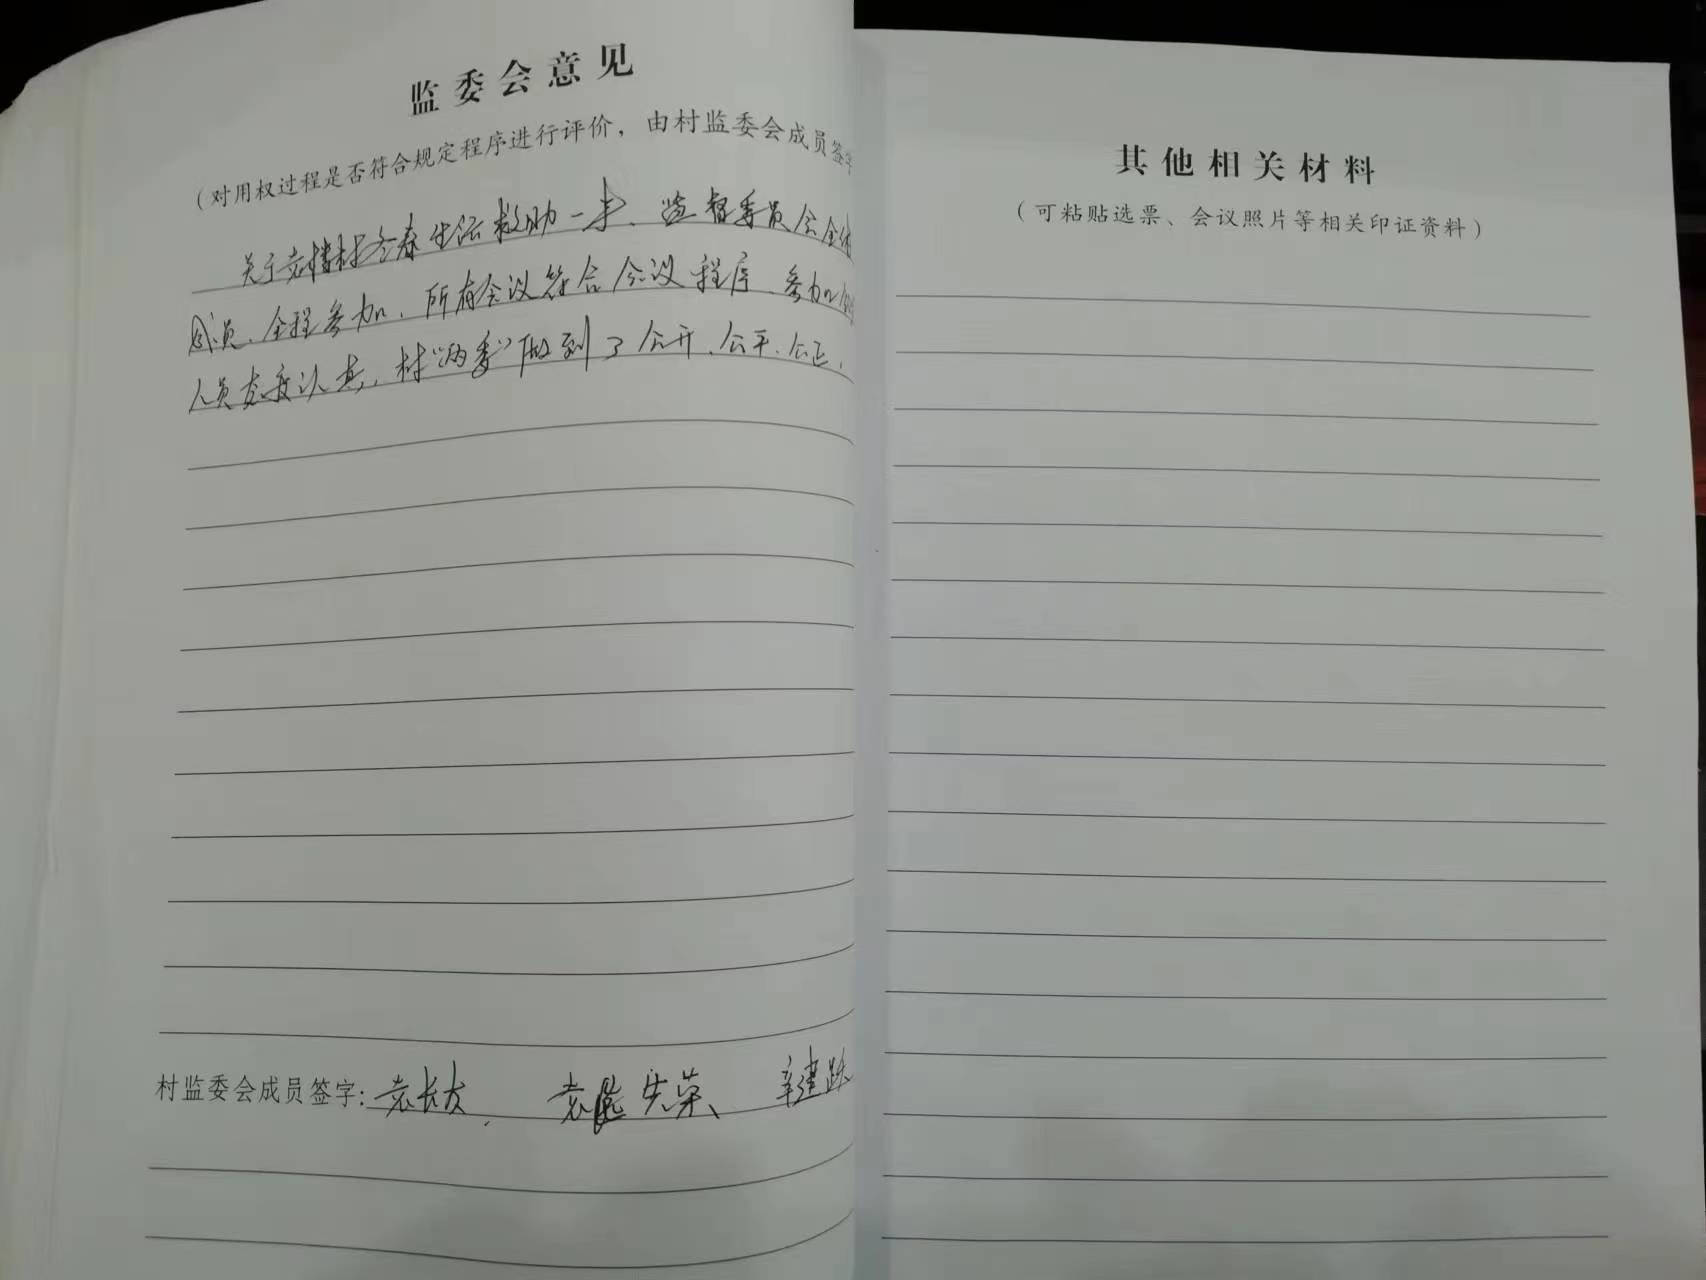 监委会意见
（对用权过程是否符合规定程序进行评价，由村监委会成员签字
关于袁楼村冬春生活救助一事、监督委员会全体
成员、全程参加，所有会议符合会议程序、参加
人员态度认真，村“两委”做到了公开、公平、公正，
村监委会成员签字：袁长友、 袁 先荣、 辛建跃
其他相关材料
（可粘贴选票、会议照片等相关印证资料）